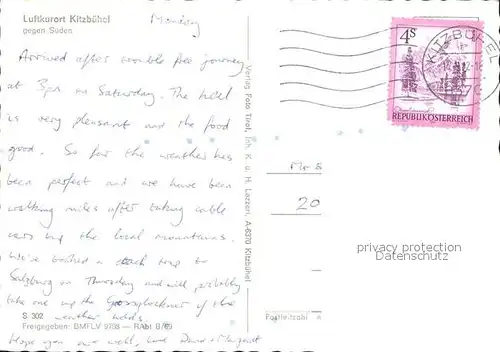 Luftkurort Kitzbühel
gegen Süden
Monday
Arrived after trouble free journey
at 3pm on Saturday. The hotel
is very pleasant and the food
good. So far the weather has
been perfect and we have been
walking miles after taking cable
cars up the local mountains.
We've booked a coach trip to
Salzburg on Thursday and will probably
take one up the Grossglockner if the
weather holds.
S 302
Freigegeben: BMFLV 9798 – RAbt B/69
Hope you are well, love David & Margaret
Verlag Foto Tirol, Inh. K. u. H. Lazzeri, A-6370 Kitzbühel
4S
REPUBLIK ÖSTERREICH
KITZBÜHEL
Mr
20
privacy protection
Datenschutz
Postleitzahl